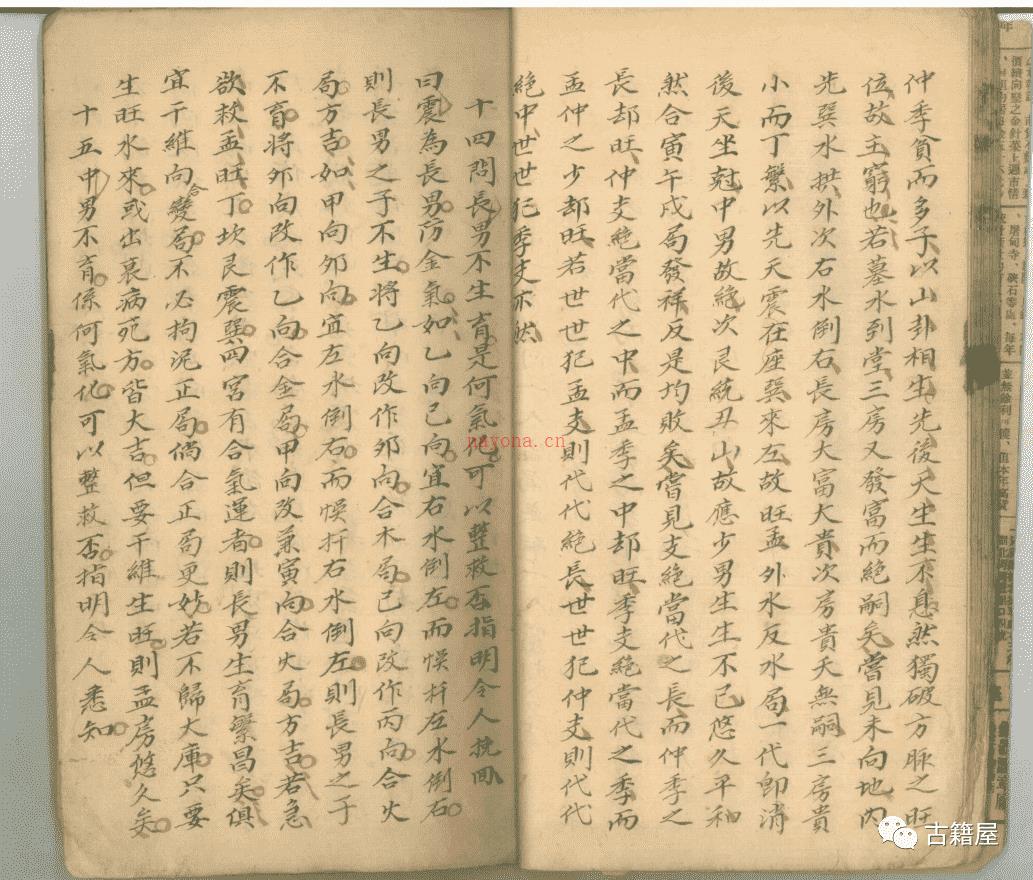 仲季貪而多子以山卦相生先後天生生不息然獨破方脉之旺
位故主窮也若墓水到堂三房又發富而絕嗣矣嘗見未向地内
先巽水拱外次右水倒右長房大富大貴次房貴天無嗣三房貴
小而丁繁以先天震在座巽來左故旺孟外水反水局一代卽消
後天坐尅中男故絕次艮統丑山故應少男生生不已悠久平和
然合寅午戌局發祥反是均敗矣嘗見支絕當代之長而仲季之
長却旺仲支絕當代之中而孟季之中却旺季支絕當代之季而
孟仲之少却旺若世世犯孟支則代代絕長世世犯仲支則代代
絕中世世犯季支亦然
十四問長男不生育是何氣化可以整救否指明令人挽回
曰震為長男防金氣如乙向己向宜右水倒左而悞扦左水倒右
則長男之子不生將乙向改作夘向合木局己向改作丙向合火
局方吉如甲向夘向宜左水倒右而悞扦右水倒左則長男之子
不育將夘向改作乙向合金局甲向改兼寅向合火局方吉若急
欲救孟旺丁坎艮震巽四宮有合氣運者則長男生育繁昌矣俱
宜干維向合變局不必拘泥正局倘合正局更妙若不歸大庫只要
生旺水來或出衰病死方皆大吉但要干維生旺則孟房悠久矣
十五中男不育係何氣化可以整救否指明令人悉知
nayona.cn
古籍屋